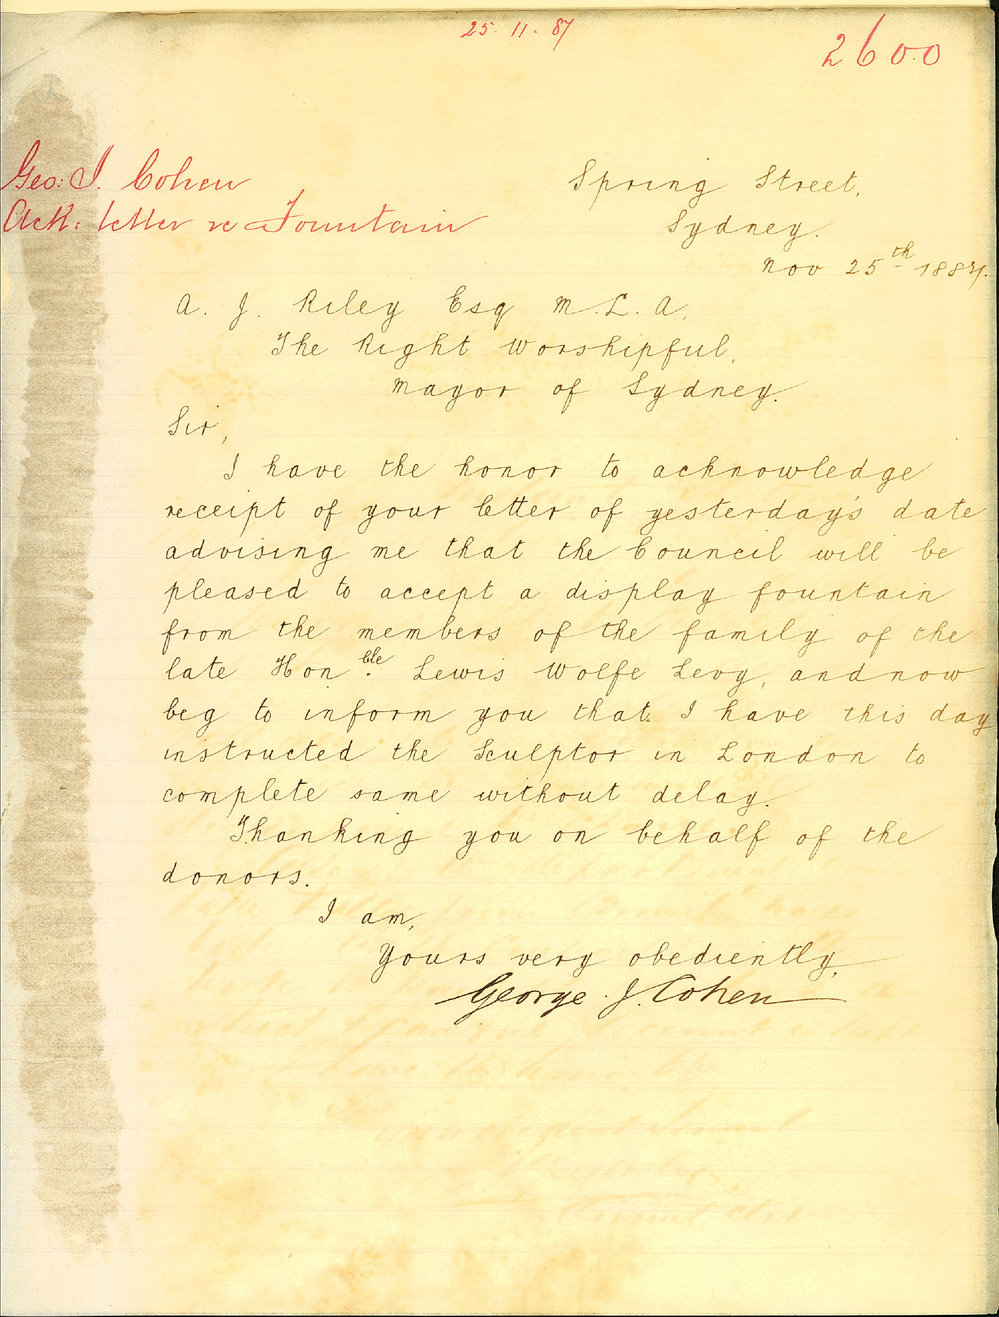 25. 11. 87
2600
Geo: J. Cohen
Ack: letter re Fountain
Spring Street,
Sydney.
Nov 25th 1887.
A. J. Riley Esq M.L.A,
The Right Worshipful,
Mayor of Sydney.
Sir,
I have the honor to acknowledge
receipt of your letter of yesterday's date
advising me that the Council will be
pleased to accept a display fountain
from the members of the family of the
late Honble. Lewis Wolfe Levy, and now
beg to inform you that I have this day
instructed the Sculptor in London to
complete same without delay.
Thanking you on behalf of the
donors.
I am,
Yours very obediently,
George. J. Cohen